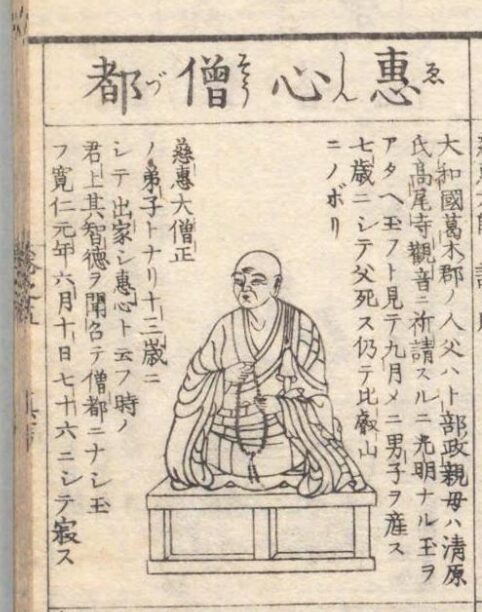 惠心僧都
ゑしんそうづ
大和國葛木郡ノ人父ハト部政親母ハ清原
氏髙尾寺觀音ニ祈請スルニ光明ナル玉ヲ
アタヘ玉フト見テ九月メニ男子ヲ產ス
七歳ニシテ父死ス仍テ比叡山
ニノボリ
慈惠大僧正
ノ弟子トナリ十三歳ニ
シテ出家シ惠心ト云フ時ノ
君上其智德ヲ聞召テ僧都ニナシ玉
フ寛仁元年六月十日七十六ニシテ寂ス